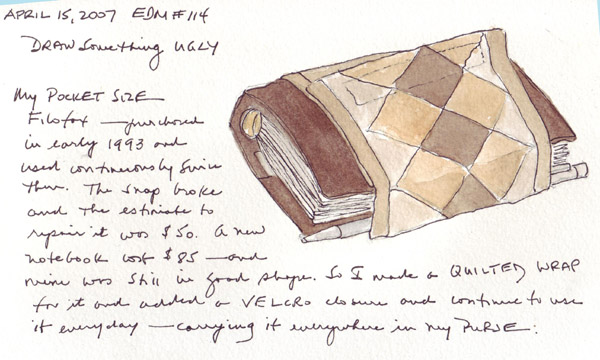 APRIL 15, 2007 EDM #114
DRAW Something UGLY
My POCKET SIZE
Filofax — purchased
in early 1993 and
used continuously since
then. The snap broke
and the estimate to
repair it was $50. A new
notebook cost $85 — and
mine was still in good shape. So I made a QUILTED WRAP
for it and added a VELCRO closure and continue to use
it everyday — carrying it everywhere in my PURSE.